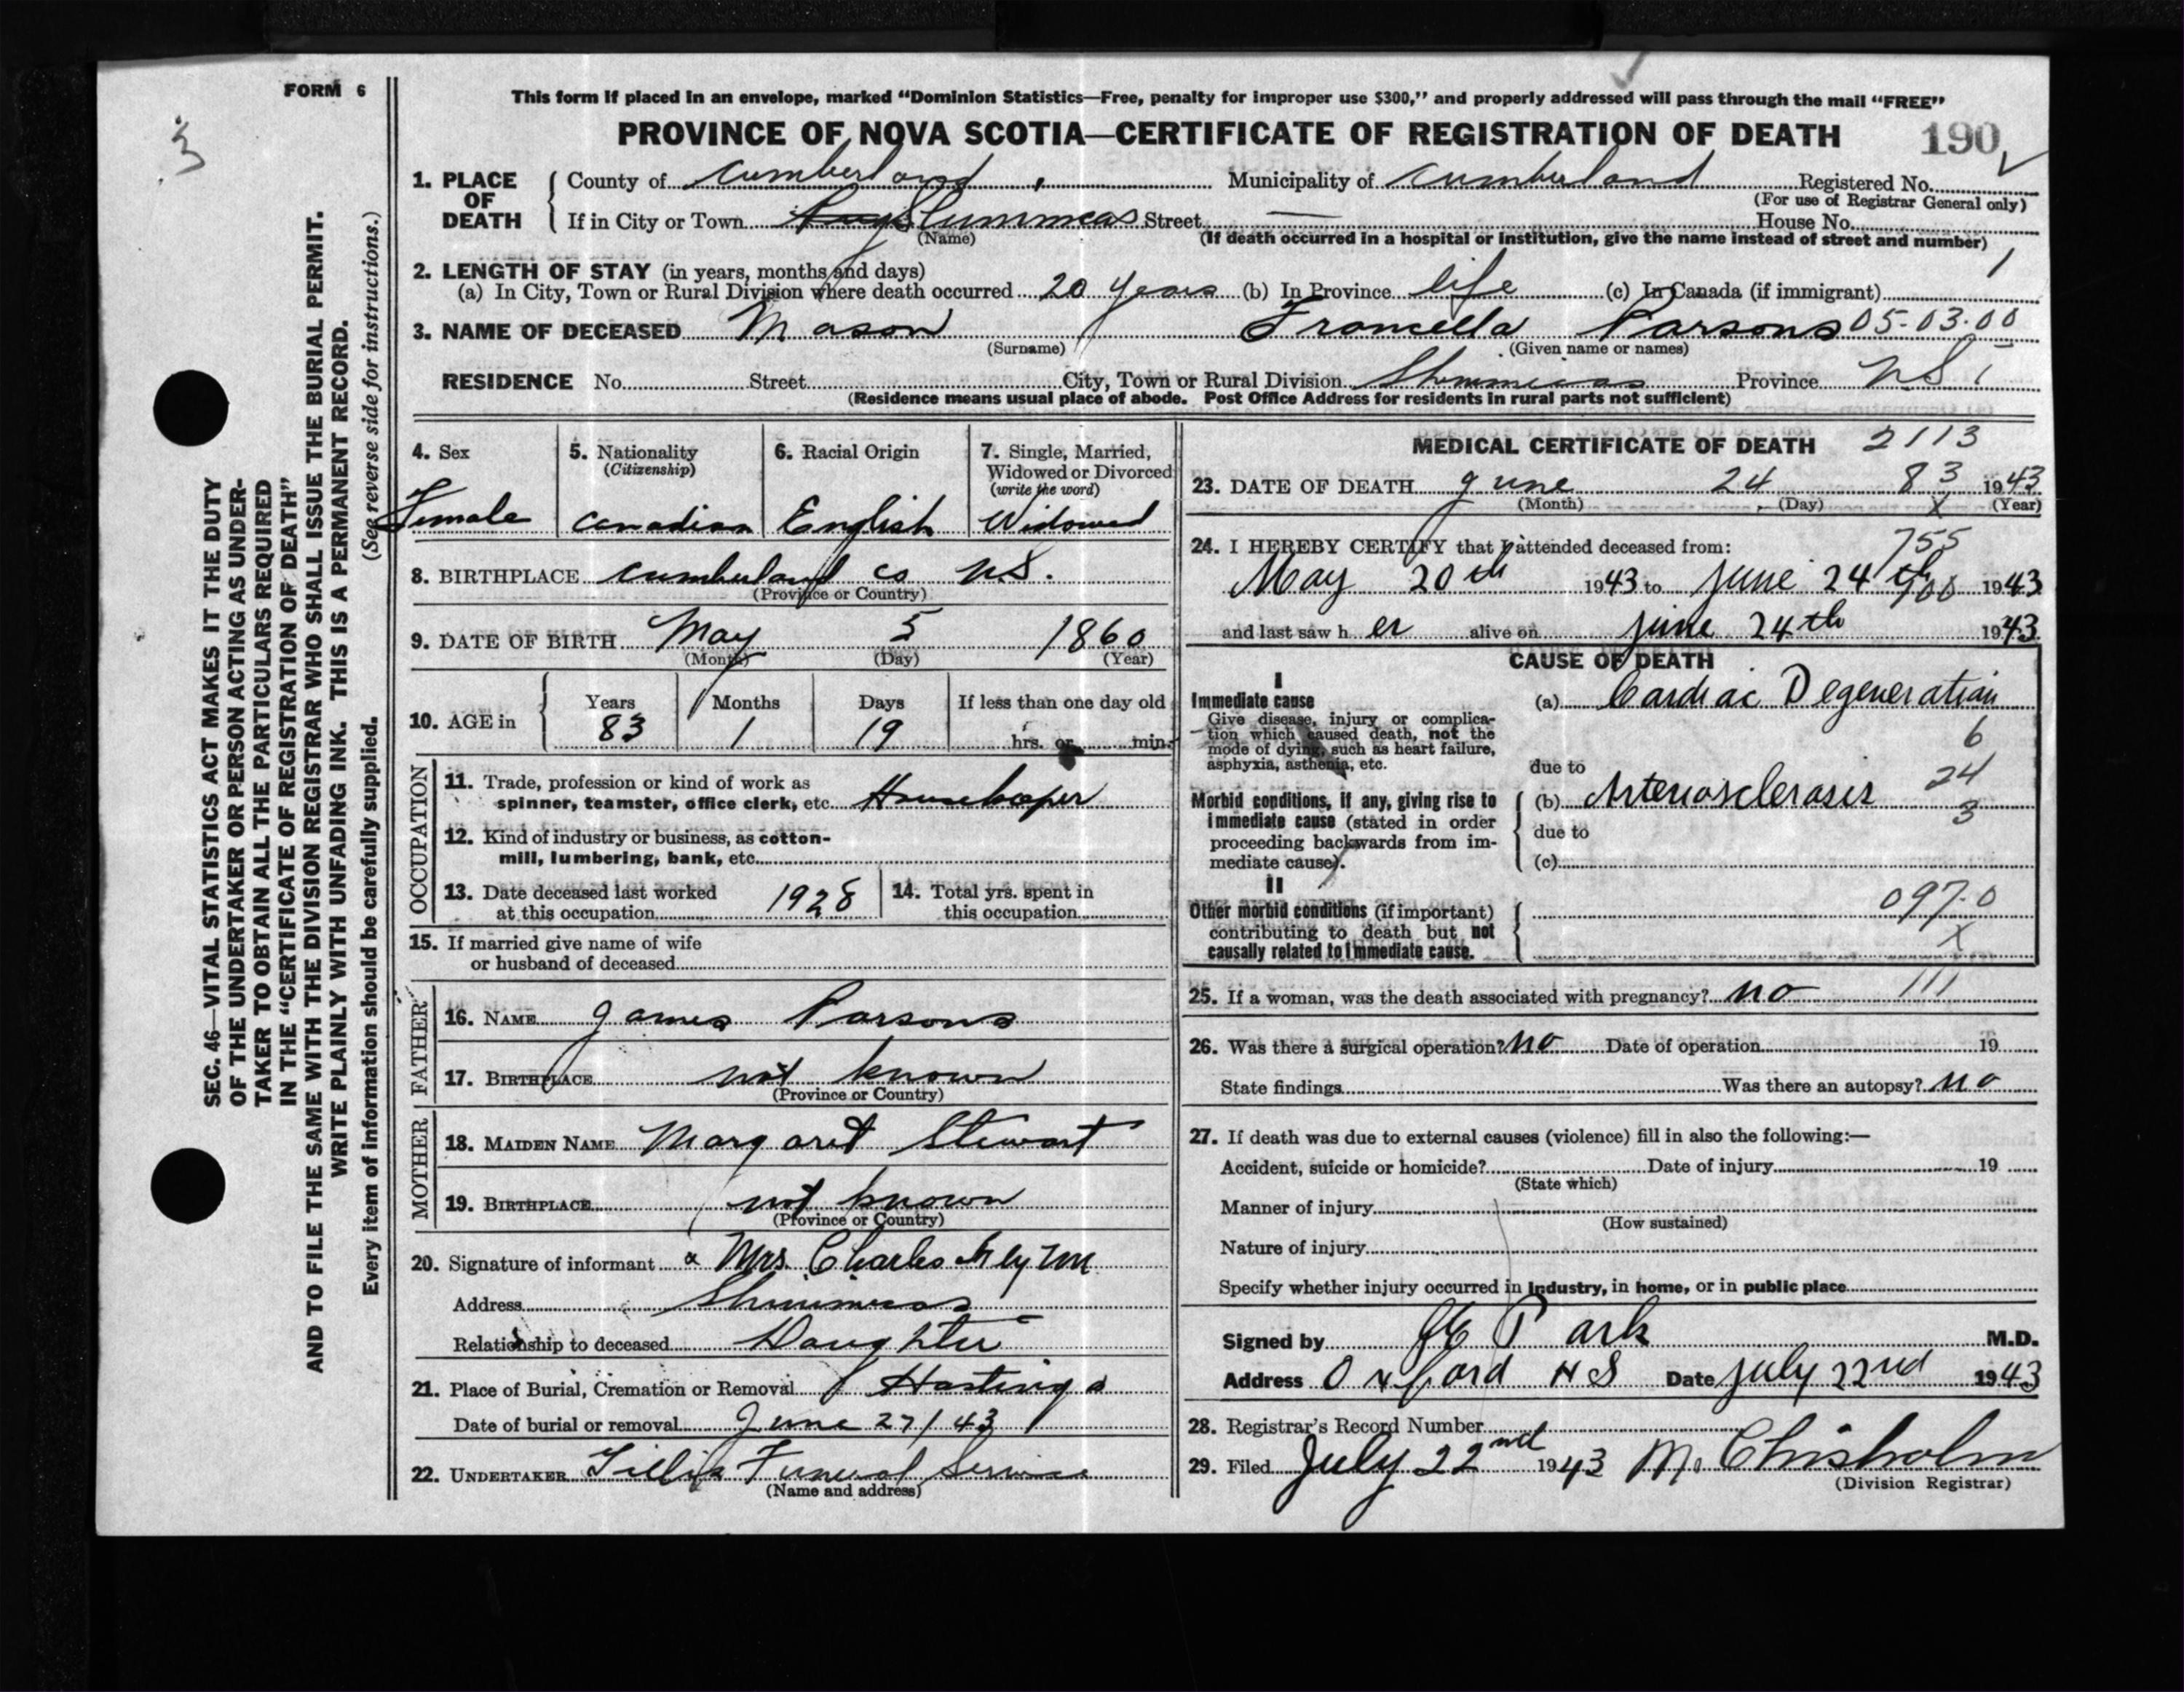 FORM 6
3
This form if placed in an envelope, marked “Dominion Statistics—Free, penalty for improper use $300,” and properly addressed will pass through the mail “FREE”
PROVINCE OF NOVA SCOTIA—CERTIFICATE OF REGISTRATION OF DEATH 190
1. PLACE OF DEATH County of Cumberland Municipality of Cumberland Registered No.
(For use of Registrar General only)
If in City or Town Street — House No.
(Name) (If death occurred in a hospital or institution, give the name instead of street and number)
2. LENGTH OF STAY (in years, months and days) 1
(a) In City, Town or Rural Division where death occurred 20 years (b) In Province life (c) In Canada (if immigrant)
3. NAME OF DECEASED Mason Francella Parsons 05-03-00
(Surname) (Given name or names)
RESIDENCE No. Street City, Town or Rural Division Shinimicas Province N.S.
(Residence means usual place of abode. Post Office Address for residents in rural parts not sufficient)
4. Sex 5. Nationality (Citizenship) 6. Racial Origin 7. Single, Married, Widowed or Divorced (write the word)
Female Canadian English Widowed
8. BIRTHPLACE Cumberland Co N.S.
(Province or Country)
9. DATE OF BIRTH May 5 1860
(Month) (Day) (Year)
10. AGE in Years Months Days If less than one day old
83 1 19 hrs. or min.
OCCUPATION
11. Trade, profession or kind of work as
spinner, teamster, office clerk, etc. Housekeeper
12. Kind of industry or business, as cotton-
mill, lumbering, bank, etc.
13. Date deceased last worked
at this occupation 1928
14. Total yrs. spent in
this occupation
15. If married give name of wife
or husband of deceased
FATHER
16. NAME James Parsons
17. BIRTHPLACE not known
(Province or Country)
MOTHER
18. MAIDEN NAME Margaret Stewart
19. BIRTHPLACE not known
(Province or Country)
20. Signature of informant Mrs. Charles
Address Shinimicas
Relationship to deceased Daughter
21. Place of Burial, Cremation or Removal Hastings
Date of burial or removal June 27/43
22. UNDERTAKER Funeral Service
(Name and address)
MEDICAL CERTIFICATE OF DEATH 2113
23. DATE OF DEATH June 24 83 1943
(Month) (Day) X (Year)
24. I HEREBY CERTIFY that I attended deceased from: 755
May 20th 1943 to June 24th 1943
and last saw her alive on June 24th 1943
CAUSE OF DEATH
I
Immediate cause (a) Cardiac Degeneration
Give disease, injury or complica-
tion which caused death, not the
mode of dying, such as heart failure,
asphyxia, asthenia, etc.
6
due to 24
Morbid conditions, if any, giving rise to (b) Arteriosclerosis
immediate cause (stated in order 3
proceeding backwards from im- due to
mediate cause). (c)
II
Other morbid conditions (if important) 097.0
contributing to death but not X
causally related to immediate cause.
25. If a woman, was the death associated with pregnancy? no 111
26. Was there a surgical operation? no Date of operation 19
State findings Was there an autopsy? no
27. If death was due to external causes (violence) fill in also the following:—
Accident, suicide or homicide? Date of injury 19
(State which)
Manner of injury
(How sustained)
Nature of injury
Specify whether injury occurred in industry, in home, or in public place
Signed by Park M.D.
Address Oxford NS Date July 22nd 1943
28. Registrar's Record Number
29. Filed July 22nd 1943 M. Chisholm
(Division Registrar)
SEC. 46—VITAL STATISTICS ACT MAKES IT THE DUTY
OF THE UNDERTAKER OR PERSON ACTING AS UNDER-
TAKER TO OBTAIN ALL THE PARTICULARS REQUIRED
IN THE “CERTIFICATE OF REGISTRATION OF DEATH”
AND TO FILE THE SAME WITH THE DIVISION REGISTRAR WHO SHALL ISSUE THE BURIAL PERMIT.
WRITE PLAINLY WITH UNFADING INK. THIS IS A PERMANENT RECORD.
Every item of information should be carefully supplied. (See reverse side for instructions.)